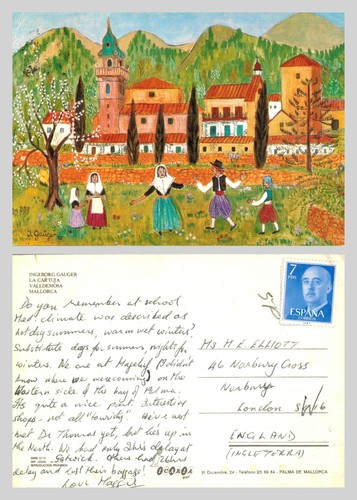 I. Gauger
INGEBORG GAUGER
LA CARTUJA
VALLDEMOSA
MALLORCA
Do you remember at school
Med: climate was described as
hot dry summers, warm wet winters?
Substitute days for summer, nights for
winters. We are at Magaluf (didn't
know where we were coming) on the
Western side of the bay of Palma.
It's quite a nice part. Interesting
shops - not all "touristy". We've not
met Dr Thomas yet, but he's up in
the North. We had only 2½ hrs delay at
Gatwick. Others had
delay and lost their baggage!
Love
7
PTAS
ESPAÑA
Ms M. E. ELLIOTT
46 Norbury Cross
Norbury
London SW16
ENGLAND
(INGLETERRA)
REPRODUCCION PROHIBIDA
31 Diciembre, 24 - Teléfono 25 69 64 - PALMA DE MALLORCA